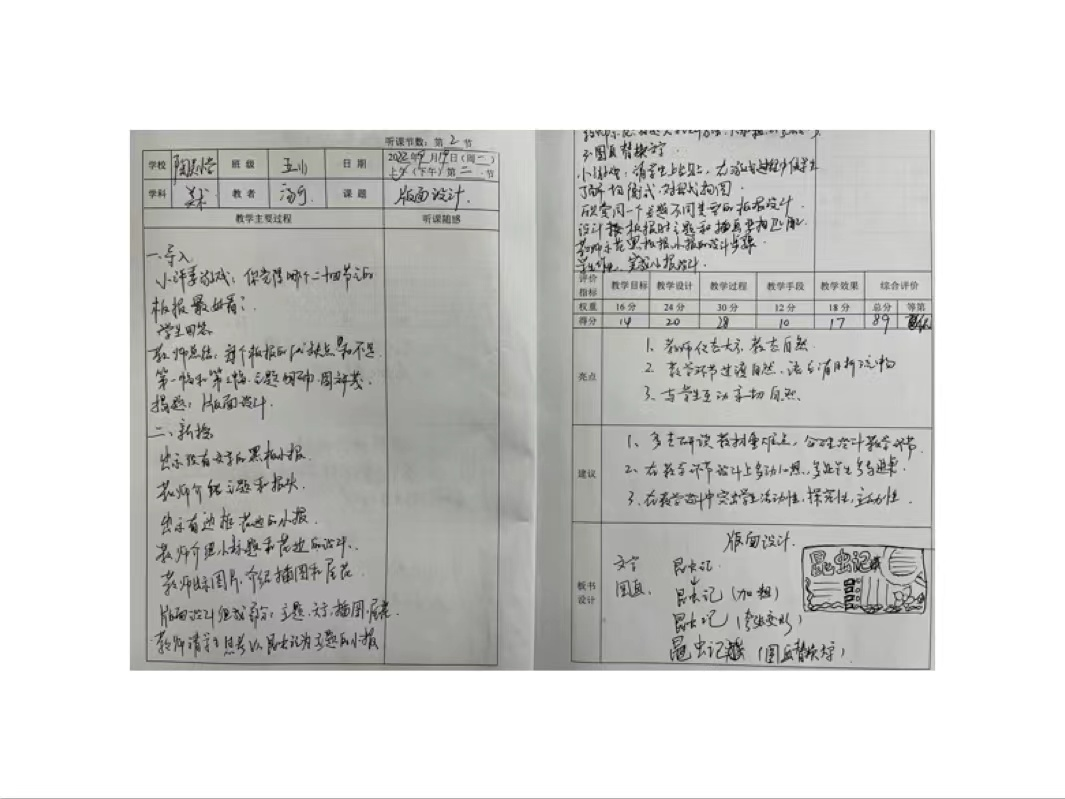 听课节数：第 2 节
学校 班级 五 日期 2022年9月19日(周一) 上午(下午)第二节
学科 美术 教者 汤 课题 版面设计.
教学主要过程 听课随感
一.导入
小评委游戏：你觉得哪个二十四节气的
板报最好看？
学生回答
教师总结：每个板报的优缺点和不足
第一幅和第 幅.主题明确.图文并茂
揭题：版面设计.
二、新授
出示没有文字的黑板小报.
老师介绍主题和报头.
出示有边框花边的小报.
教师介绍小标题和花边的设计.
教师出示图片.介绍插图和尾花.
版面设计组成部分：主题.文字.插图.尾花.
教师请学生思考以昆虫记为主题的小报
图画替换字.
小游戏：请学生上台贴，在 过程中使学生
了解均衡式.对称式构图.
欣赏同一个主题不同类型的板报设计.
设计 板报时主题和插画要相匹配.
教师示范黑板报小报的设计步骤.
学生作业.完成小报设计.
评价指标 教学目标 教学设计 教学过程 教学手段 教学效果 综合评价
权重 16分 24分 30分 12分 18分 总分 等第
得分 14 20 28 10 17 89
亮点
1. 教师仪态大方.教态自然.
2. 教学环节过渡自然，语言清晰流畅
3. 与学生互动亲切自然
建议
1、多去研读教材重难点，合理设计教学环节.
2、在教学环节设计上多动心思，多让学生参与进来.
3、在教学设计中突出学生活动性，探究性，主动性.
板书设计
版面设计.
文字 昆虫记.
图画. 昆虫记(加粗)
昆虫记(变形)
昆虫记(图画替换字)
昆虫记